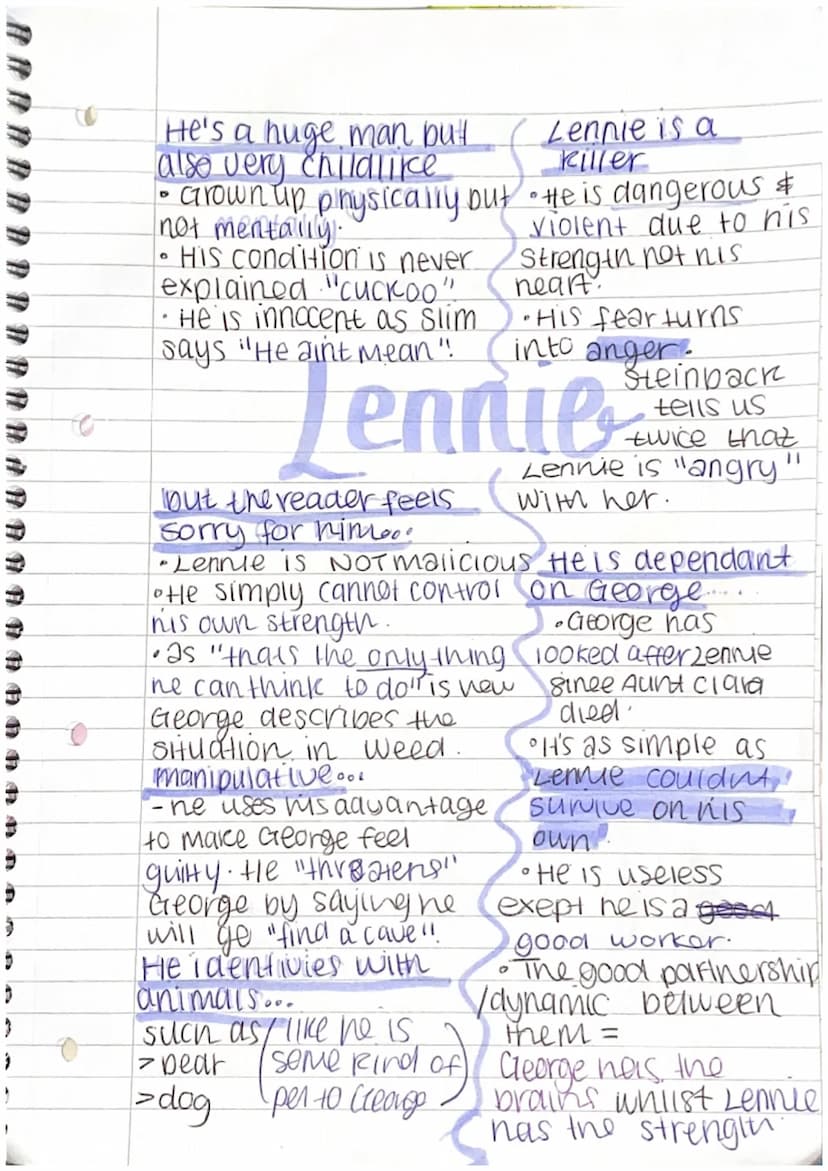 He's a huge man but
also very childlike
• Grown up physically but
not mentally.
• His condition is never
explained "cuckoo"
• He is innocent as Slim
says "He aint mean".
Lennie is a
killer
• He is dangerous &
violent due to his
strength not his
heart.
• His fear turns
into anger.
Steinback
tells us
twice that
Lennie is "angry"
with her.
Lennie
but the reader feels
sorry for him...
• Lennie is NOT malicious
• He simply cannot control
his own strength.
• as "thats the only thing
he can think to do" is how
George describes the
situation in weed.
manipulative...
- he uses his advantage
to make George feel
guilty. He "threatens"
George by saying he
will go "find a cave".
He identivies with
animals...
such as
> bear
> dog
(like he is
some kind of
pet to George)
He is dependant
on George.....
• George has
looked after Lennie
since Aunt Clara
died.
• It's as simple as
Lennie couldnt
survive on his
own.
• He is useless
exept he is a good
good worker.
• The good partnership
/dynamic between
them =
George has the
brains whilst Lennie
has the strength.